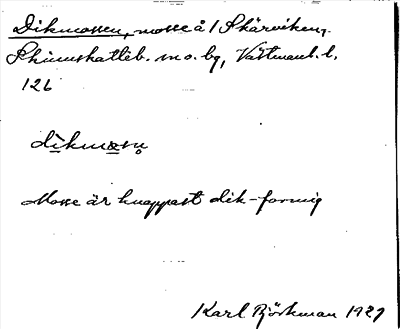 Dikmossen, mosse å / Skärviken,
Skinnskatteb. sn o. bg, Västmanl. l.
126
dikmåsn̥
Mosse är knappast dik-formig
Karl Björkman 1927